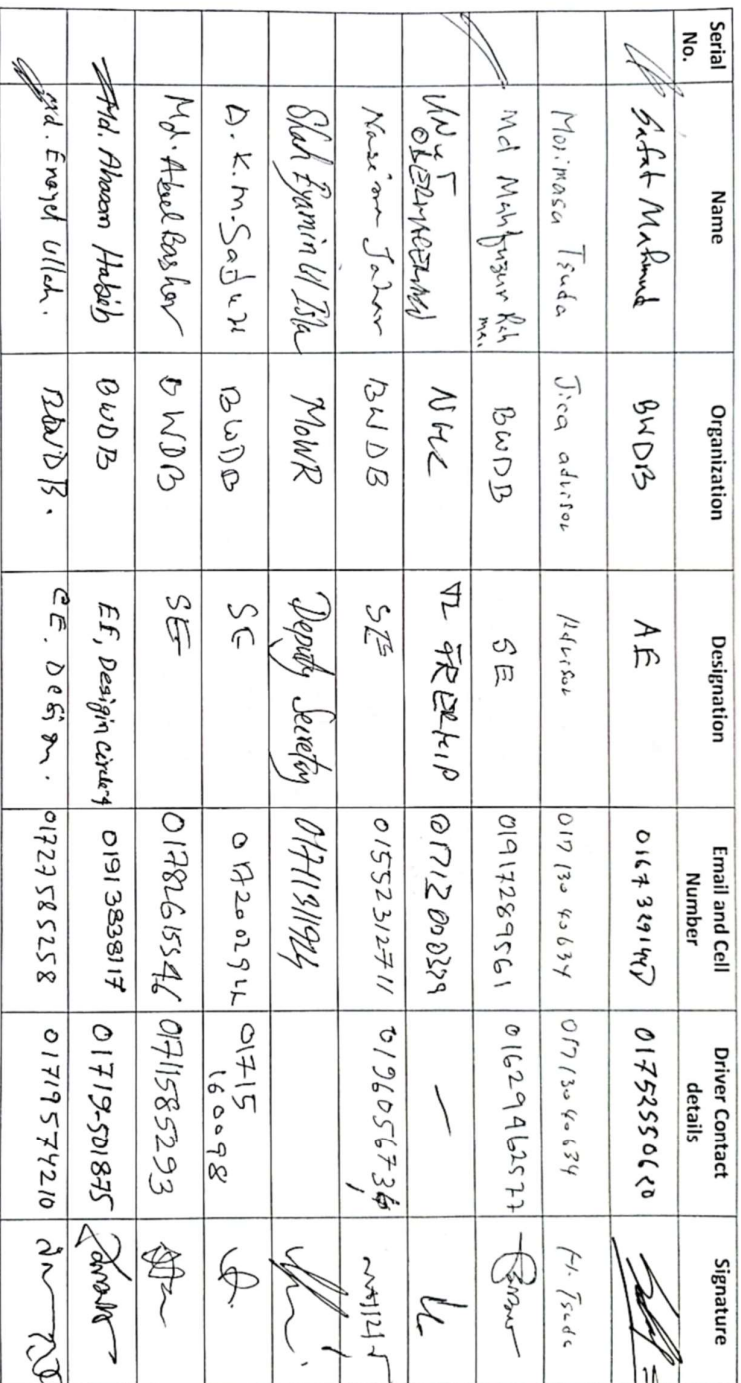 Serial No. Name Organization Designation Email and Cell Number Driver Contact details Signature
Safat Mahmud BWDB AE 01752550620
Morimasa Tsuda Jica advisor Advisor 01713040634 01713040634 M. Tsuda
Md Mahfuzur Rahman BWDB SE 01917289561 01629462577
NHC TL —
Nasima Jahan BWDB SE 01552312711
Shah Eyamin Ul Isla MoWR Deputy Secretary 01711311924
D. K. m. Saduzz BWDB SE 01715 160098
Md. Abul Basher BWDB SE 01782615546 01711585293
Md. Ahasan Habib BWDB EE, Design circle-4 01913838117 01719-501875
Md. Enayet Ullah. BWDB. CE. Design. 01727585258 01719574210